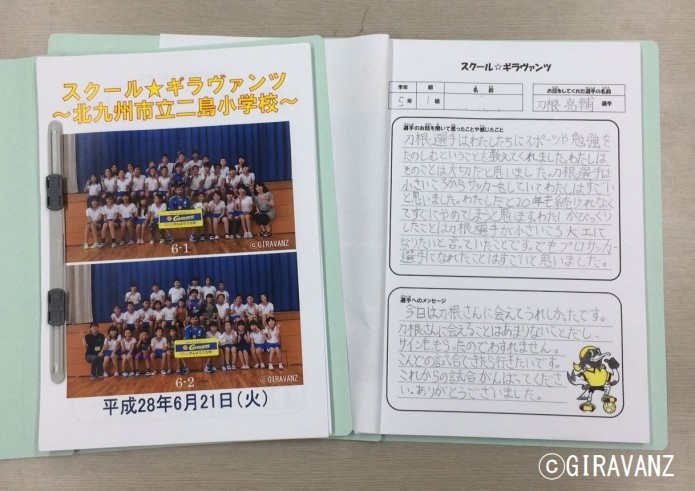 スクール★ギラヴァンツ
～北九州市立二島小学校～
6-1
©GIRAVANZ
6-2
©GIRAVANZ
平成28年6月21日(火)
スクール☆ギラヴァンツ
学年
組
名前
お話をしてくれた選手の名前
5年
1組
刀根 亮輔
選手
選手のお話を聞いて思ったことや感じたこと
刀根選手はわたしたちにスポーツや勉強を
たのしむということを教えてくれました。わたしは
ものごとは大切だと思いました。刀根選手は
小さいころからサッカーをしていてわたしはすごい
と思いました。わたしだと20年も続けれなく
てすぐにやめてしまうと思います。わたしがびっくり
したことは刀根選手が小さいころ大工に
なりたいと言っていたことです。でもプロサッカー
選手になれたことはすごいと思いました。
選手へのメッセージ
今日は刀根さんに会えてうれしかったです。
刀根さんに会えることはあまりないことだし、
サインをもらったのでわすれません。
こんどの試合できたら行きたいです。
これからの試合がんばってくださ
い。ありがとうございました。
©GIRAVANZ